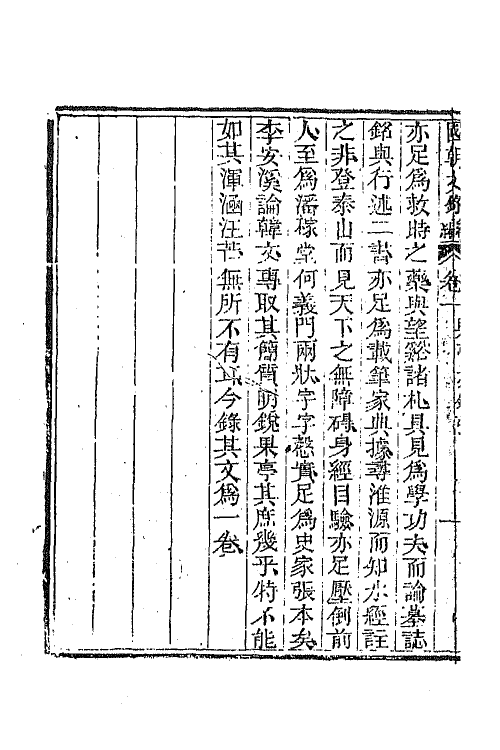 國朝文錄續編卷一
亦足爲救時之藥與望谿諸札具見爲學功夫而論墓誌
銘與行述二書亦足爲載筆家典據尋淮源而知水經註
之非登泰山而見天下之無障碍身經目驗亦足壓倒前
人至爲潘稼堂何義門兩狀字字慤實足爲史家張本矣
李安溪論韓文專取其簡質明銳果亭其庶幾乎特不能
如其渾涵汪茫無所不有耳今錄其文爲一卷